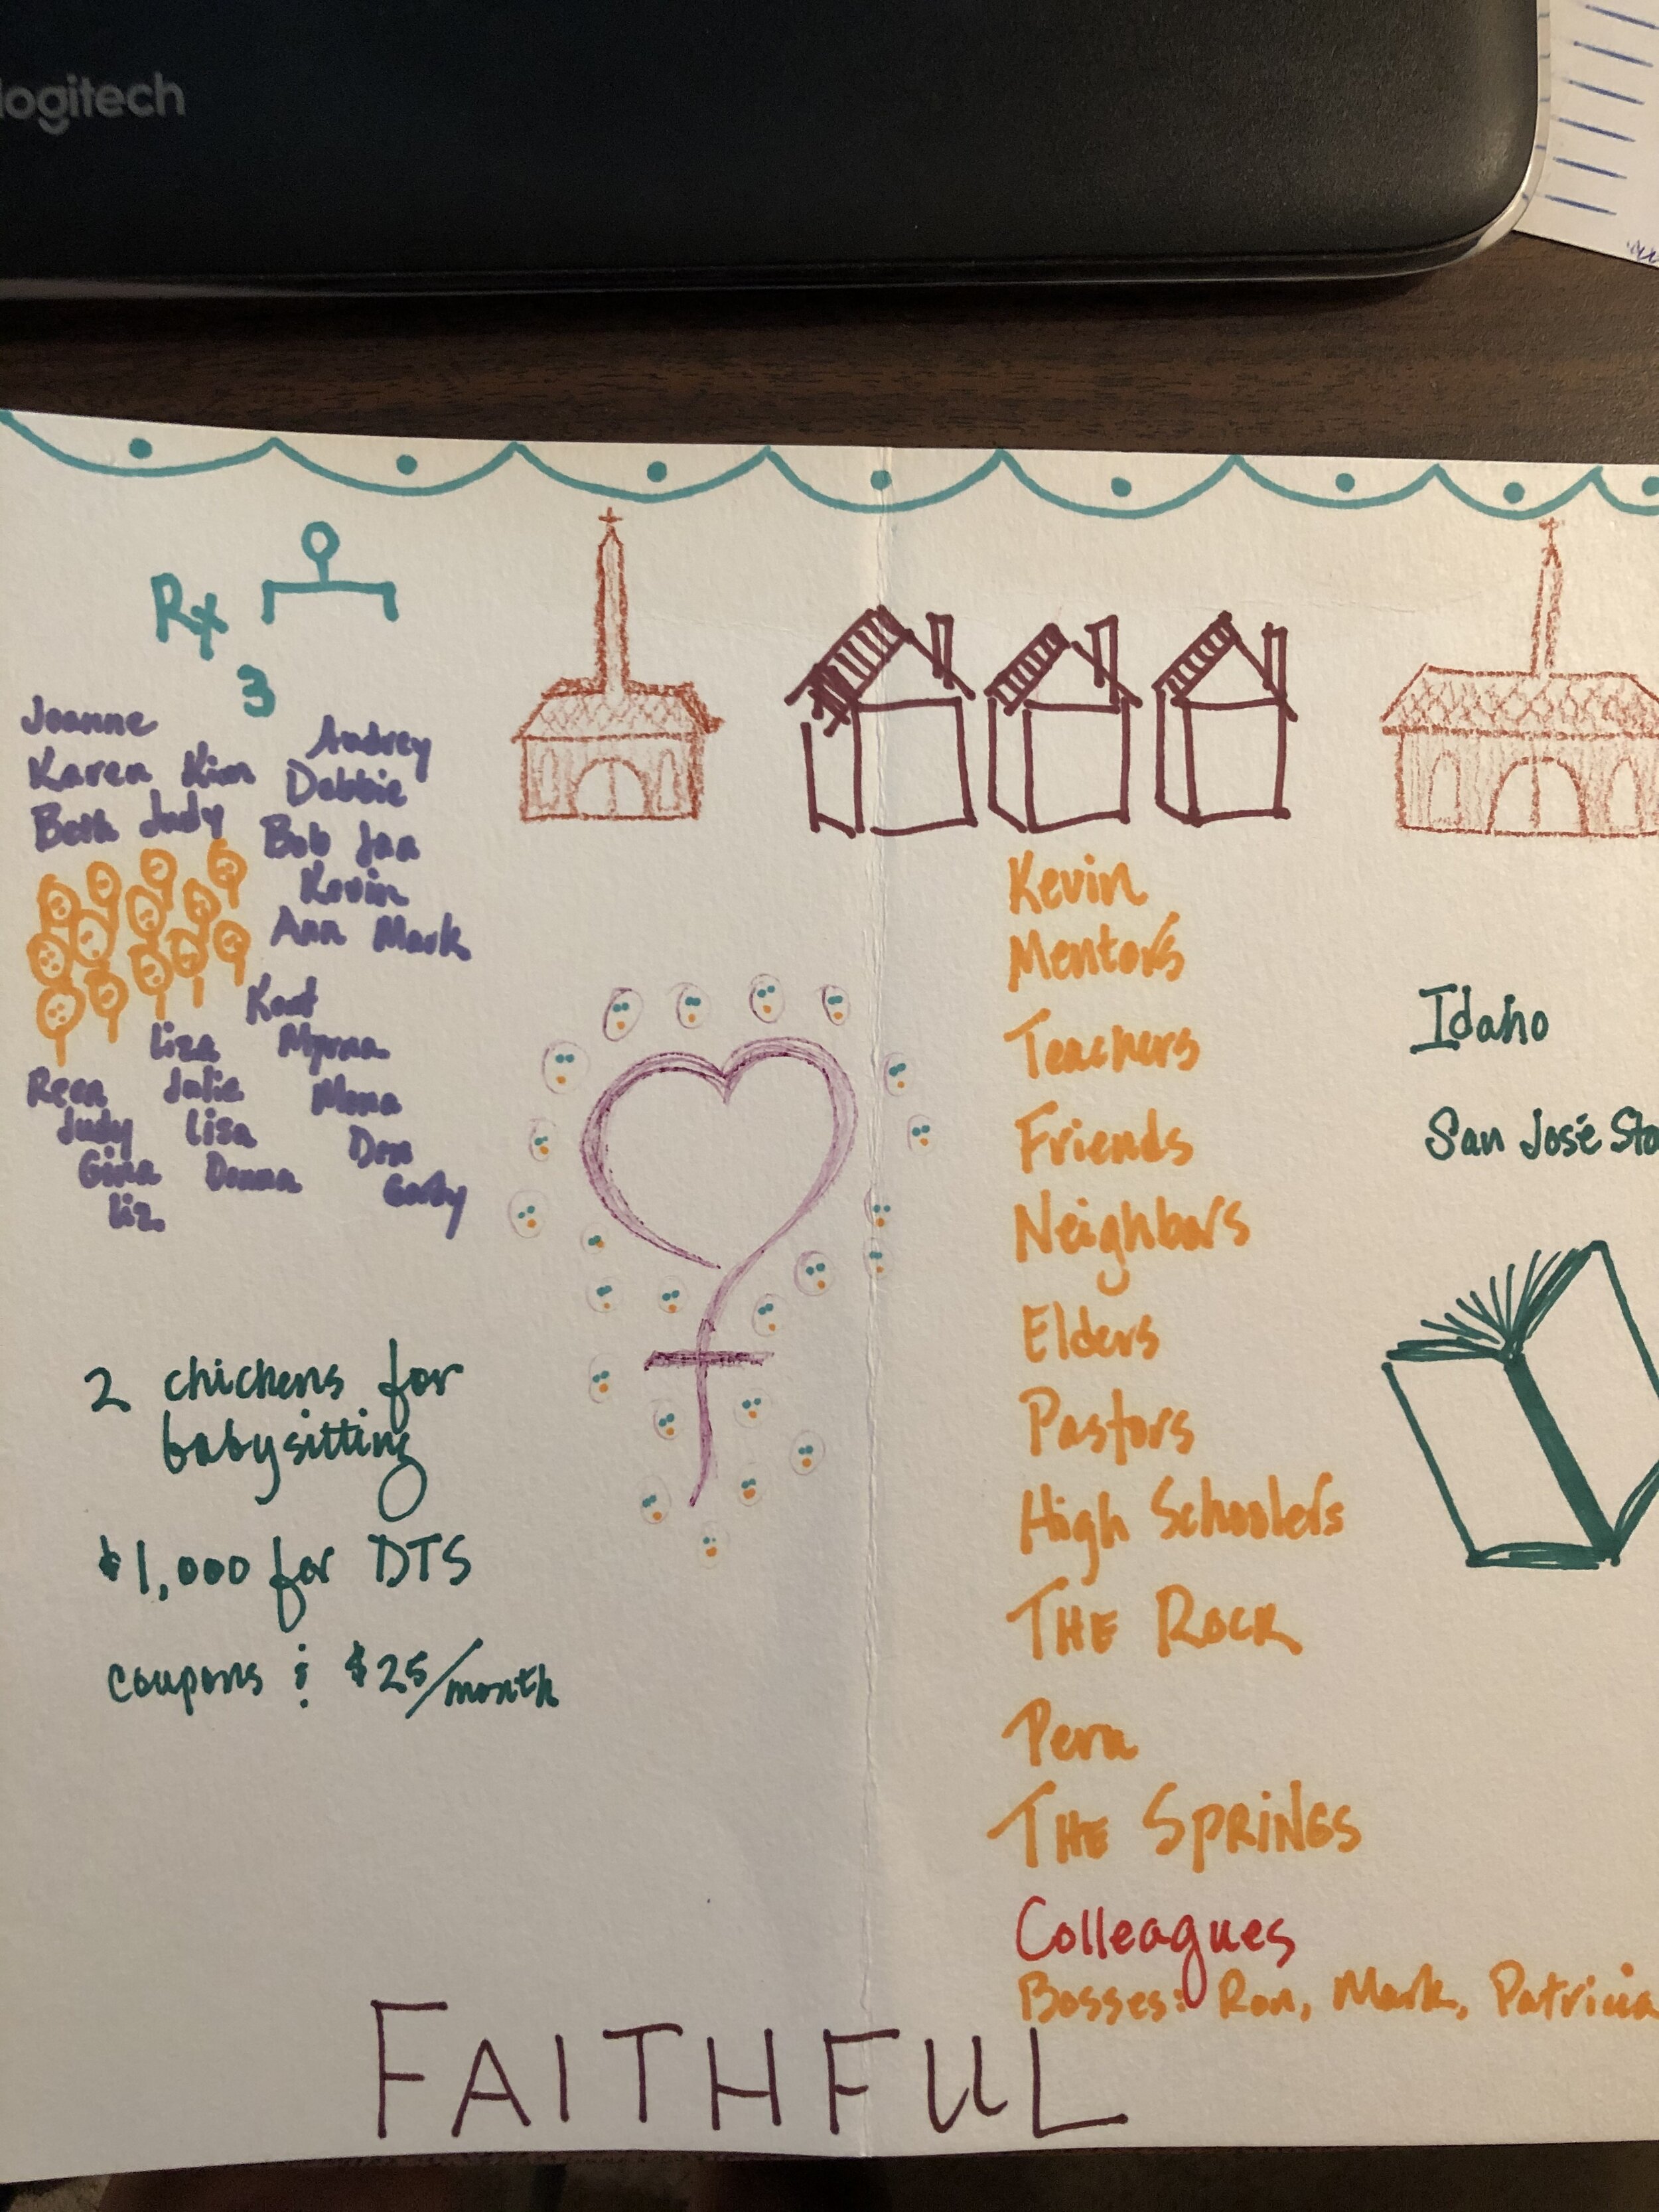 logitech
Rx
3
Joanne
Audrey
Karen Kim
Debbie
Beth Judy
Bob Jan
Kevin
Ann Mark
Kent
Liza
Myrna
Julie
Mona
Judy
Lisa
Don
Gina
Donna
Liz
2 chickens for
babysitting
$1,000 for DTS
coupons & $25/month
Kevin
Mentors
Teachers
Friends
Neighbors
Elders
Pastors
High Schoolers
THE ROCK
Peru
THE SPRINGS
Colleagues
Bosses: Ron, Mark, Patricia
Idaho
San José Sta
FAITHFUL